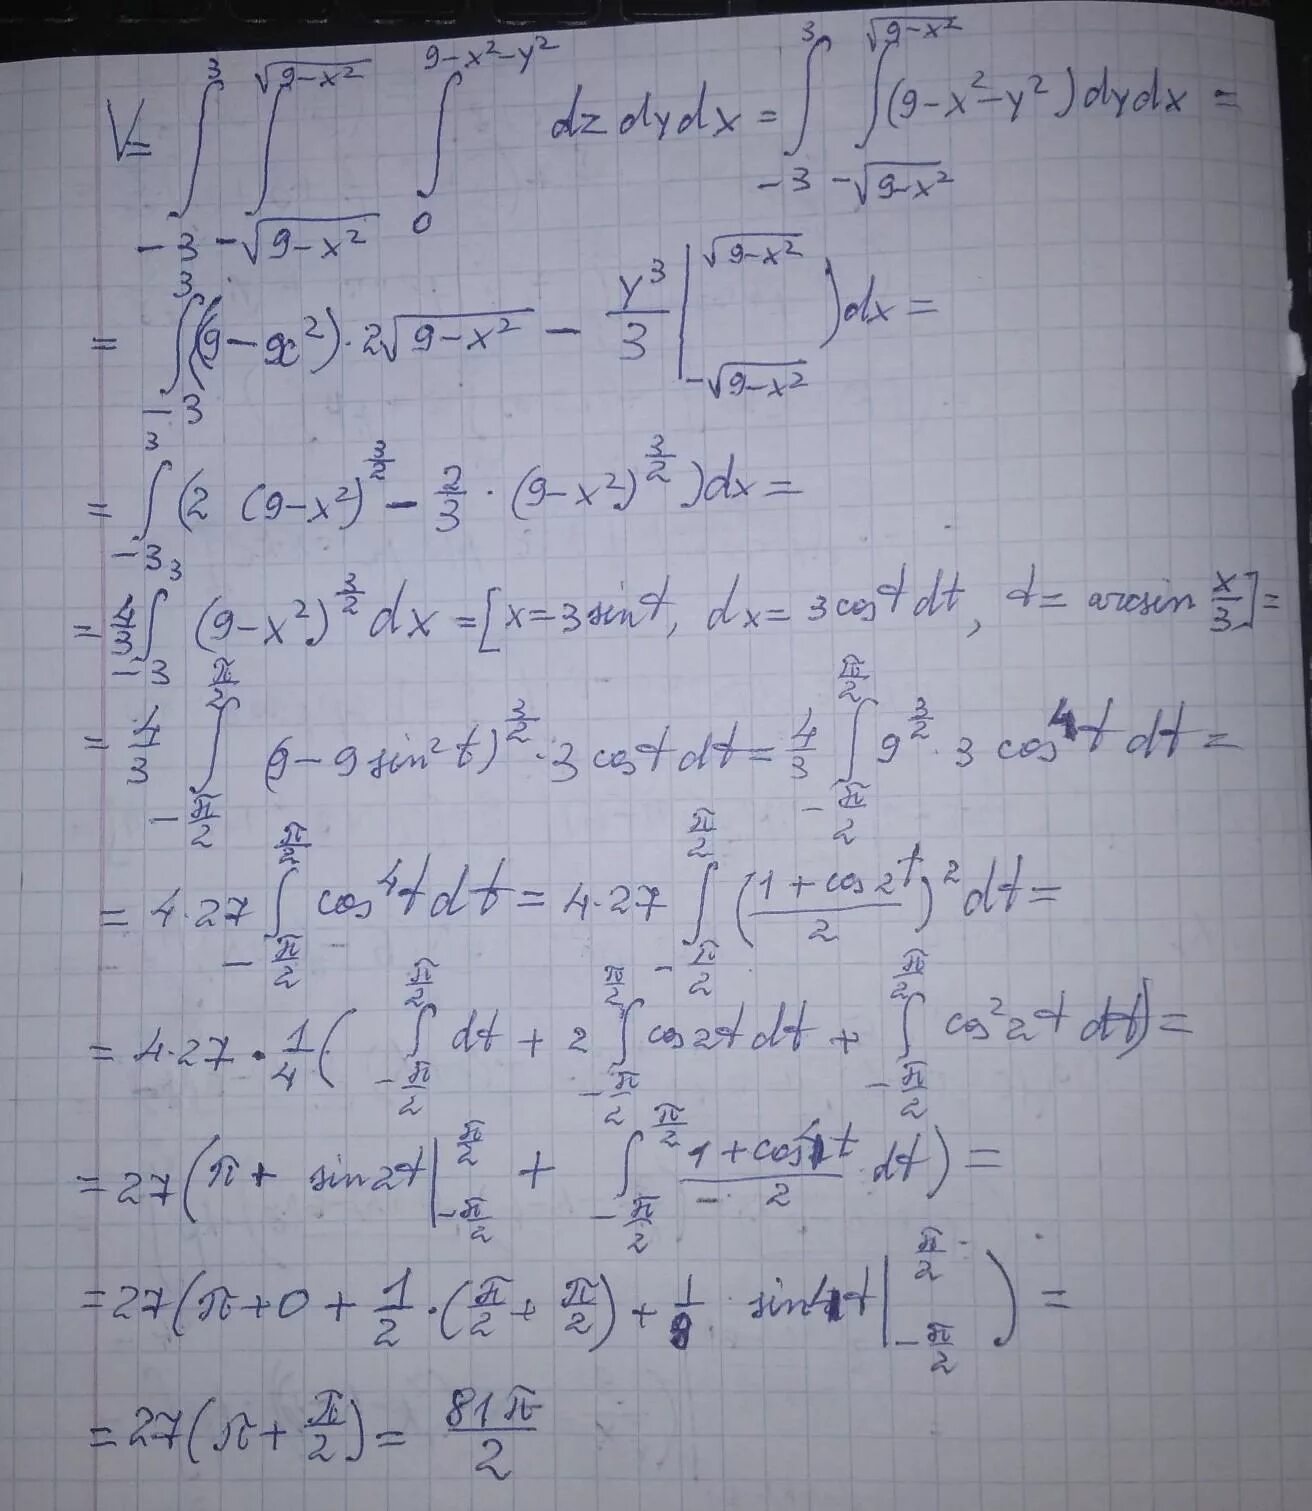 V = ∫_{-3}^{3} ∫_{-√(9-x²)}^{√(9-x²)} ∫_{0}^{9-x²-y²} dz dy dx = ∫_{-3}^{3} ∫_{-√(9-x²)}^{√(9-x²)} (9-x²-y²) dy dx =
= ∫_{-3}^{3} ((9-x²)·2√(9-x²) - y³/3 |_{-√(9-x²)}^{√(9-x²)}) dx =
= ∫_{-3}^{3} (2 (9-x²)^{3/2} - 2/3 · (9-x²)^{3/2}) dx =
= 4/3 ∫_{-3}^{3} (9-x²)^{3/2} dx = [x = 3 sin t, dx = 3 cos t dt, t = arcsin x/3] =
= 4/3 ∫_{-π/2}^{π/2} (9-9 sin² t)^{3/2} · 3 cos t dt = 4/3 ∫_{-π/2}^{π/2} 9^{3/2} · 3 cos⁴ t dt =
= 4·27 ∫_{-π/2}^{π/2} cos⁴ t dt = 4·27 ∫_{-π/2}^{π/2} ((1 + cos 2t)/2)² dt =
= 4·27 · 1/4 ( ∫_{-π/2}^{π/2} dt + 2 ∫_{-π/2}^{π/2} cos 2t dt + ∫_{-π/2}^{π/2} cos² 2t dt) =
= 27 (π + sin 2t |_{-π/2}^{π/2} + ∫_{-π/2}^{π/2} (1 + cos 4t)/2 dt) =
= 27 (π + 0 + 1/2 · (π/2 + π/2) + 1/8 sin 4t |_{-π/2}^{π/2}) =
= 27 (π + π/2) = 81π/2